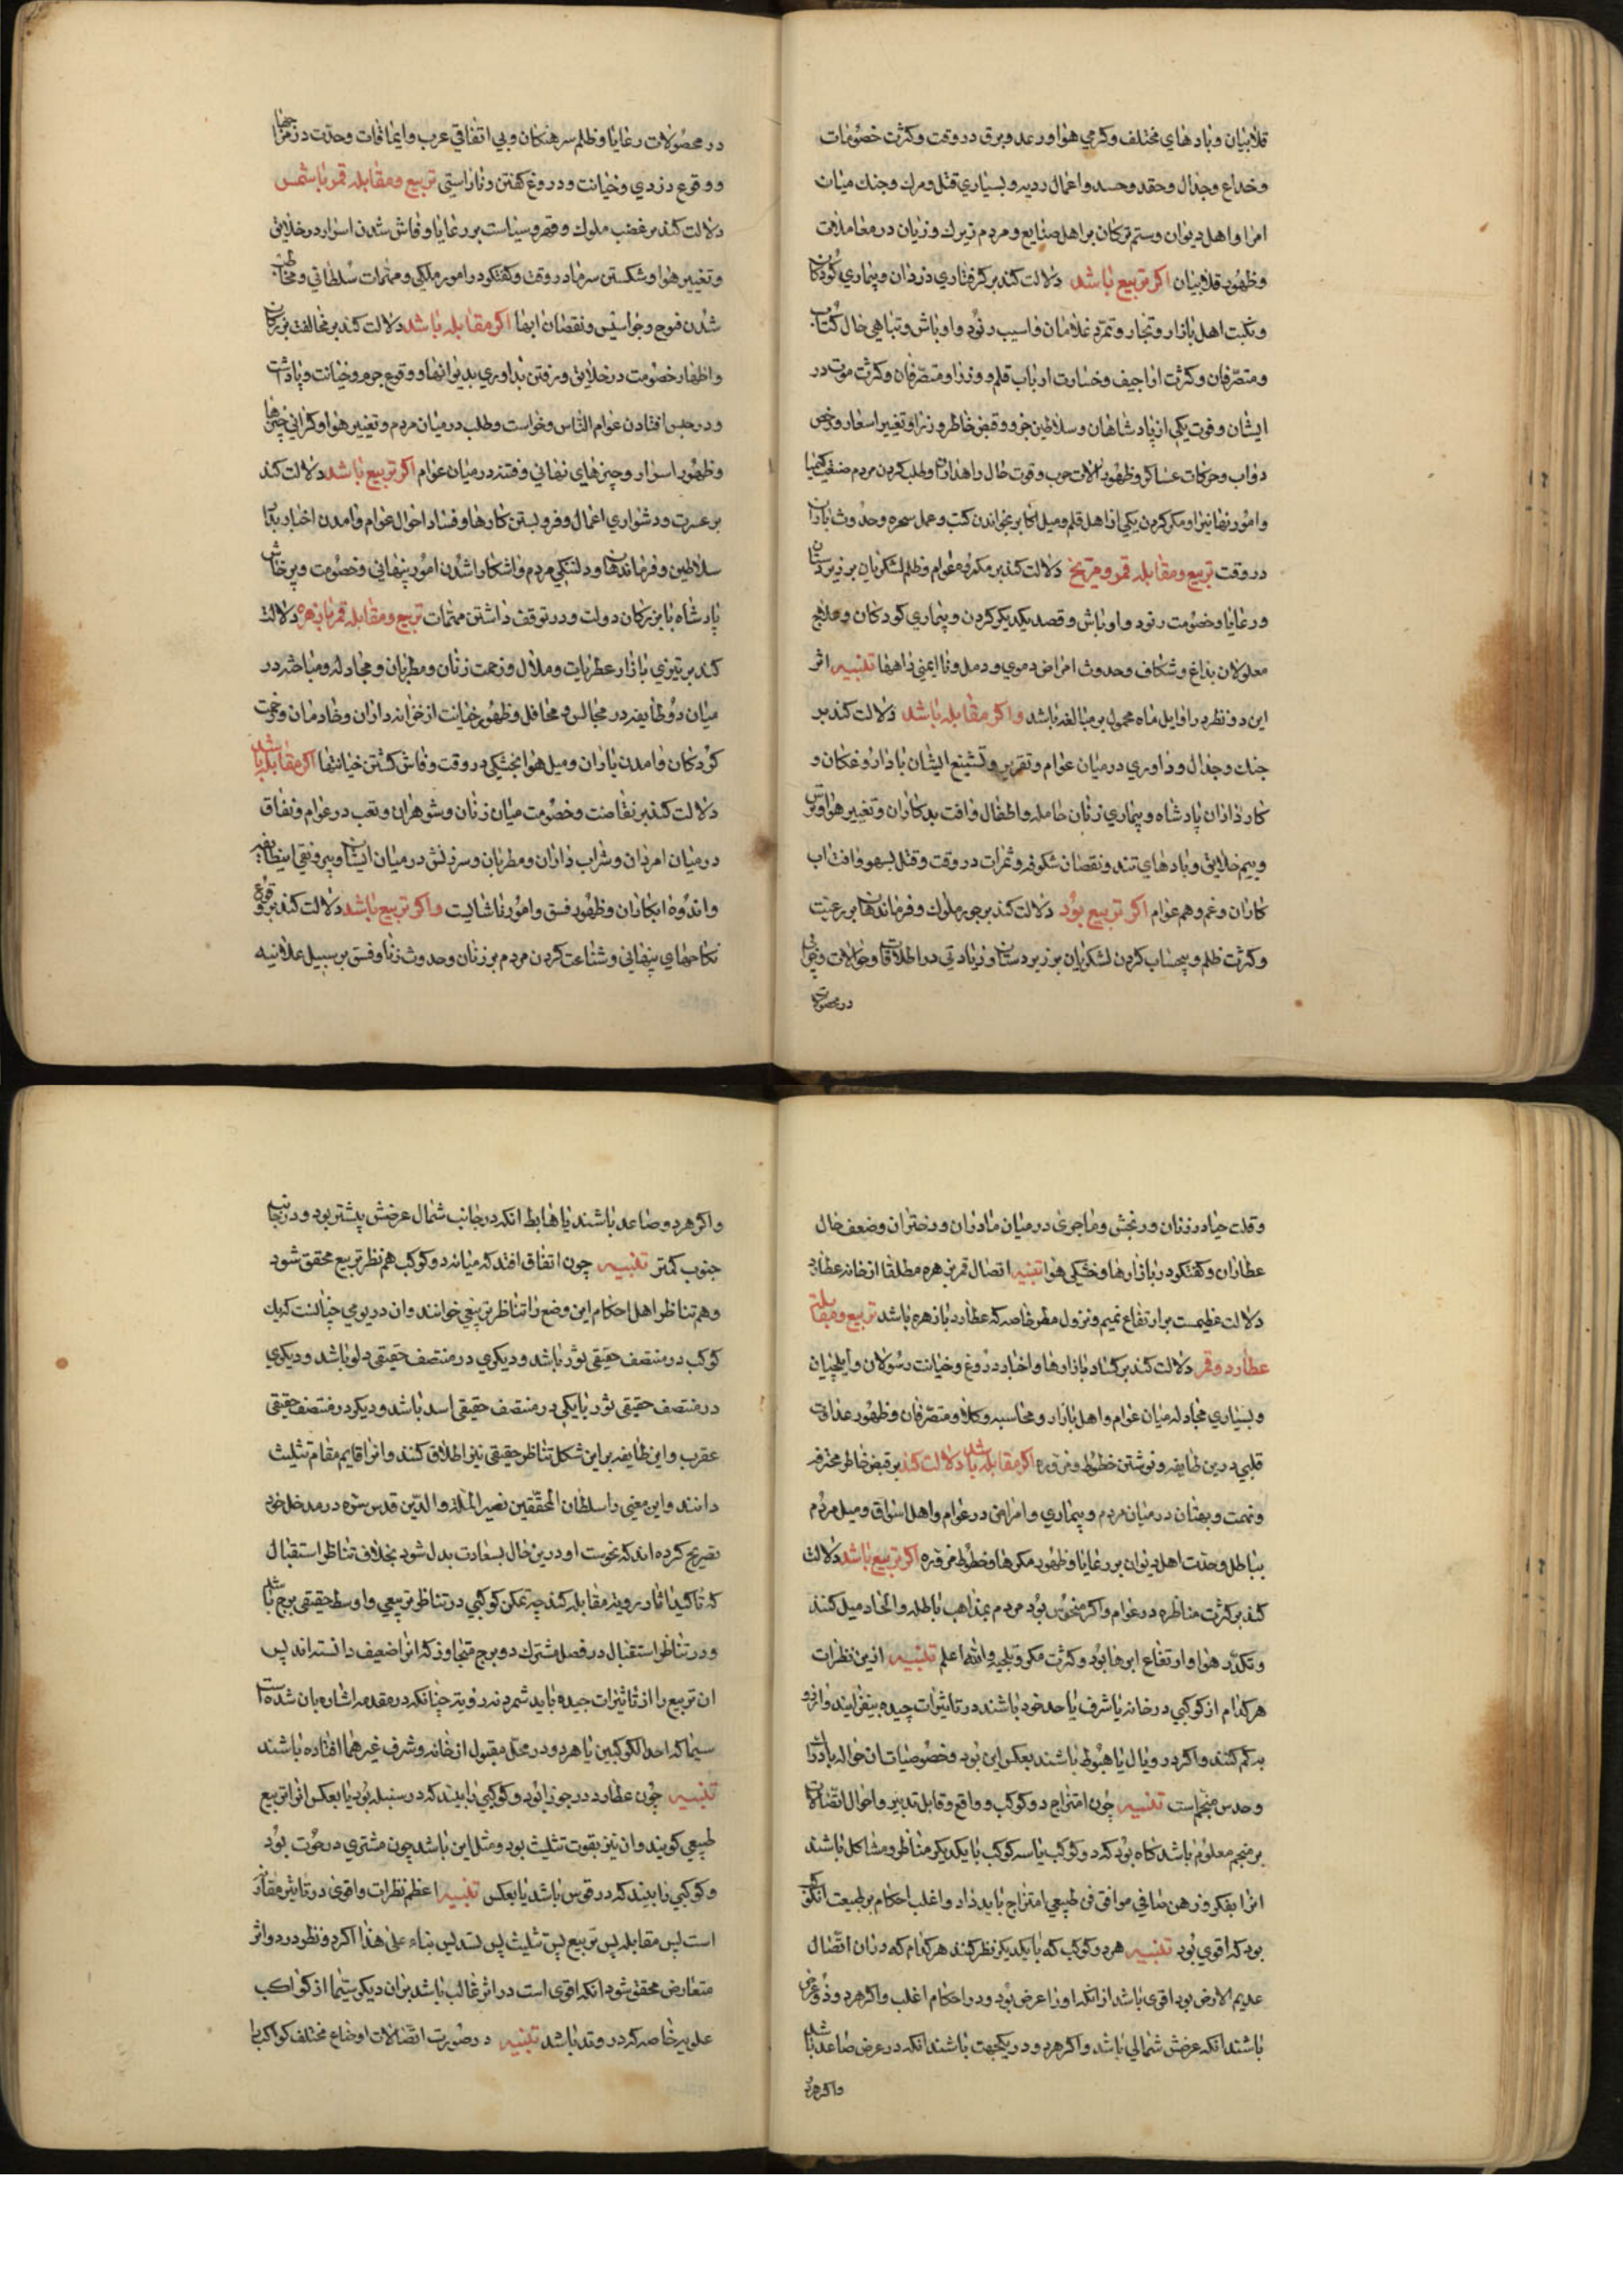 قلابیان و بادهای مختلف و گرمی هوا و رعد و برق در وقت و کثرت خصومات
و خداع و جدال و حقد و حسد و اعمال ردیه و بسیاری قتل و مرک و جنک میان
امرا و اهل دیوان و ستم ترکان بر اهل صنایع و مردم زیرک و زیان در معاملات
و ظهور قلابیان اکر تربیع باشد دلالت کند بر گرفتاری دزدان و بیماری کودکان
و نکبت اهل بازار و تجار و تمرد غلامان و اسیب رنود و اوباش و تباهی حال کتاب
و متصرفان و کثرت اراجیف و خسارت ارباب قلم و وزرا و متصرفان و کثرت موت در
ایشان و فوت یکی از پادشاهان و سلاطین جزو و قبض خاطر وزرا و تغییر اسعار و رخص
دواب و حرکات عساکر و ظهور الات حرب و قوت حال راهداران و طلب کردن مردم صنعت کیمیا
و امور نهانیرا و مکر کردن یکی از اهل قلم و میل اکابر بخواندن کتب و عمل سحره و حدوث باران
در وقت تربیع و مقابله قمر و مریخ دلالت کند بر مکروه عوام و ظلم لشکریان بر زیردستان
و رعایا و خصومت رنود و اوباش و قصد یکدیکر کردن و بیماری کودکان و علاج
معلولان بداغ و شکاف و حدوث امراض دموی و دمل و ناایمنی راهها تنبیه اثر
این دو نظر در اوایل ماه محمول بر مبالغه باشد و اکر مقابله باشد دلالت کند بر
جنک و جدال و داوری در میان عوام و تقریر و تشنیع ایشان با داروغکان و
کارداران پادشاه و بیماری زنان حامله و اطفال و افت بدکاران و تغییر هوا و ترس
و بیم خلایق و بادهای تند و نقصان شکوفه و ثمرات در وقت و قتل بسهو و افت اب
کاران و غم و هم عوام اکر تربیع بود دلالت کند بر جور ملوک و فرماندهان بر رعیت
و کثرت ظلم و بیحساب کردن لشکریان بر زیردستان و زیادتی در اطلاقات و حوالات و
در محصولات
در محصولات رعایا و ظلم سرهنکان و بی اتفاقی عرب و ایماقات و حدت در مزاجها
و وقوع دزدی و خیانت و دروغ کفتن و ناراستی تربیع و مقابله قمر با شمس
دلالت کند بر غضب ملوک و قهر و سیاست بر رعایا و فاش شدن اسرار در خلایق
و تغییر هوا و شکستن سرما در وقت و کفتکو در امور ملکی و مهمات سلطانی و مخاطب
شدن فوج و جواسیس و نقصان ابها اکر مقابله باشد دلالت کند بر مخالفت بزرکان
و اظهار خصومت در خلایق و رفتن بداوری بدیوانها و وقوع جرم و خیانت و پاداشت
و در حبس افتادن عوام الناس و خواست و طلب در میان مردم و تغییر هوا و کرانی چیزها
و ظهور اسرار و چیزهای نهانی و فتنه در میان عوام اکر تربیع باشد دلالت کند
بر عسرت و دشواری اعمال و فروبستن کارها و فساد احوال عوام و امدن اخبار بد از
سلاطین و فرماندهان و دلتنکی مردم و اشکارا شدن امور پنهانی و خصومت و پرخاش
پادشاه با بزرکان دولت و در توقف داشتن مهمات تربیع و مقابله قمر با زهره دلالت
کند بر تیزی بازار عطریات و ملال و زحمت زنان و مطربان و مجادله و مباحثه در
میان دو طایفه در مجالس و محافل و ظهور خیانت از خزانه داران و خادمان و زحمت
کودکان و امدن باران و میل هوا بخشکی در وقت و فاش کشتن خیانتها اکر مقابله باشد
دلالت کند بر نقاضت و خصومت میان زنان و شوهران و تعب در عوام و نفاق
در میان امردان و شراب داران و مطربان و سرزنش در میان ایشان و بیرونقی اینطایفه
و اندوه ابکاران و ظهور فسق و امور ناشایست و اکر تربیع باشد دلالت کند بر وقوع
نکاحهای پنهانی و شناعت کردن مردم بر زنان و حدوث زنا و فسق بر سبیل علانیه
و قلت حیا در زنان و رنجش و ماجری در میان مادران و دختران و ضعف حال
عطاران و کفتکو در بازارها و خشکی هوا تنبیه اتصال قمر بزهره مطلقا از خانه عطارد
دلالت عظیمست بر ارتفاع غمیم و نزول مطر خاصه که عطارد با زهره باشد تربیع و مقابله
عطارد و قمر دلالت کند بر کساد بازارها و اخبار دروغ و خیانت رسولان و ایلچیان
و بسیاری مجادله میان عوام و اهل بازار و محاسبه وکلا و متصرفان و ظهور عداوت
قلبی درین طایفه و نوشتن خطوط مزوره اکر مقابله باشد دلالت کند بر قبض خاطر محترفه
و تهمت و بهتان در میان مردم و بیماری و امراض در عوام و اهل اسواق و میل مردم
بباطل و حدت اهل دیوان بر رعایا و ظهور مکرها و خطوط مزوره اکر تربیع باشد دلالت
کند بر کثرت مناظره در عوام و اکر منحوس بود مردم بمذاهب باطله و الحاد میل کنند
و تکدر هوا و ارتفاع ابرها بود و کثرت مکر و تلجیه والله اعلم تنبیه ازین نظرات
هر کدام از کوکبی در خانه یا شرف یا حد خود باشند در تاثیرات جیده بیفزایند و از
بد کم کنند و اکر در وبال یا هبوط باشند بعکس این بود و خصوصیات ان حواله با ادراک
و حدس منجم است تنبیه چون امتزاج دو کوکب و واقع و قابل تدبیر و احوال اتصالات
بر منجم معلوم باشد کاه بود که دو کوکب یا سه کوکب با یکدیکر متناظر و مشاکل باشند
انرا بفکر و ذهن صافی موافق فن طبیعی امتزاج باید داد و اغلب احکام بر طبیعت ان کوکب
بود که اقوی بود تنبیه هر دو کوکب که با یکدیکر نظر کنند هر کدام که در ان اتصال
عدیم العرض بود اقوی باشد از انکه اورا عرض بود و در احکام اغلب و اکر هر دو ذو عرض
باشند انکه عرضش شمالی باشد و اکر هر دو در یکجهت باشند انکه در عرض صاعد باشد
و اکر هر دو
و اکر هر دو صاعد باشند یا هابط انکه در جانب شمال عرضش بیشتر بود و در جانب
جنوب کمتر تنبیه چون اتفاق افتد که میانه دو کوکب هم نظر تربیع محقق شود
و هم تناظر اهل احکام این وضع را تناظر تربیعی خوانند و ان در یومی چنانست که یک
کوکب در منتصف حقیقی ثور باشد و دیکری در منتصف حقیقی دلو باشد و دیکری
در منتصف حقیقی ثور یا یکی در منتصف حقیقی اسد باشد و دیکر در منتصف حقیقی
عقرب و این طایفه براین شکل تناظر حقیقی نیز اطلاق کنند و انرا قایم مقام تثلیث
دانند و این معنی را سلطان المحققین نصیر الملة والدین قدس سره در مدخل خود
تصریح کرده اند که نحوست او درین حال بسعادت بدل شود بخلاف تناظر استقبال
که تاکید اثار ردیه مقابله کند چه تمکن کوکبی در تناظر تربیعی واوسط حقیقی برج باشد
و در تناظر استقبال در فصل مشترک دو برج متجاوز که انرا ضعیف دانسته اند پس
ان تربیع را از تاثیرات جیده باید شمرد نه ردیه چنانکه در مقدمه اشاره بان شده است
سیما که احد الکوکبین یا هر دو در محل مقبول از خانه و شرف غیرهما افتاده باشند
تنبیه چون عطارد در جوزا بود و کوکبی را بیند که در سنبله بود یا بعکس انرا تربیع
طبیعی کویند و ان نیز بقوت تثلیث بود و مثل این باشد چون مشتری در حوت بود
و کوکبی را بیند که در قوس باشد یا بعکس تنبیه اعظم نظرات و اقوی در تاثیر مقارنه
است پس مقابله پس تربیع پس تثلیث پس تسدیس بناء علی هذا اکر دو نظر در دو اثر
متعارض محقق شود انکه اقوی است در اثر غالب باشد بران دیکر سیما از کواکب
علویه خاصه که در وتد باشد تنبیه در صورت اتصالات اوضاع مختلف کواکب با